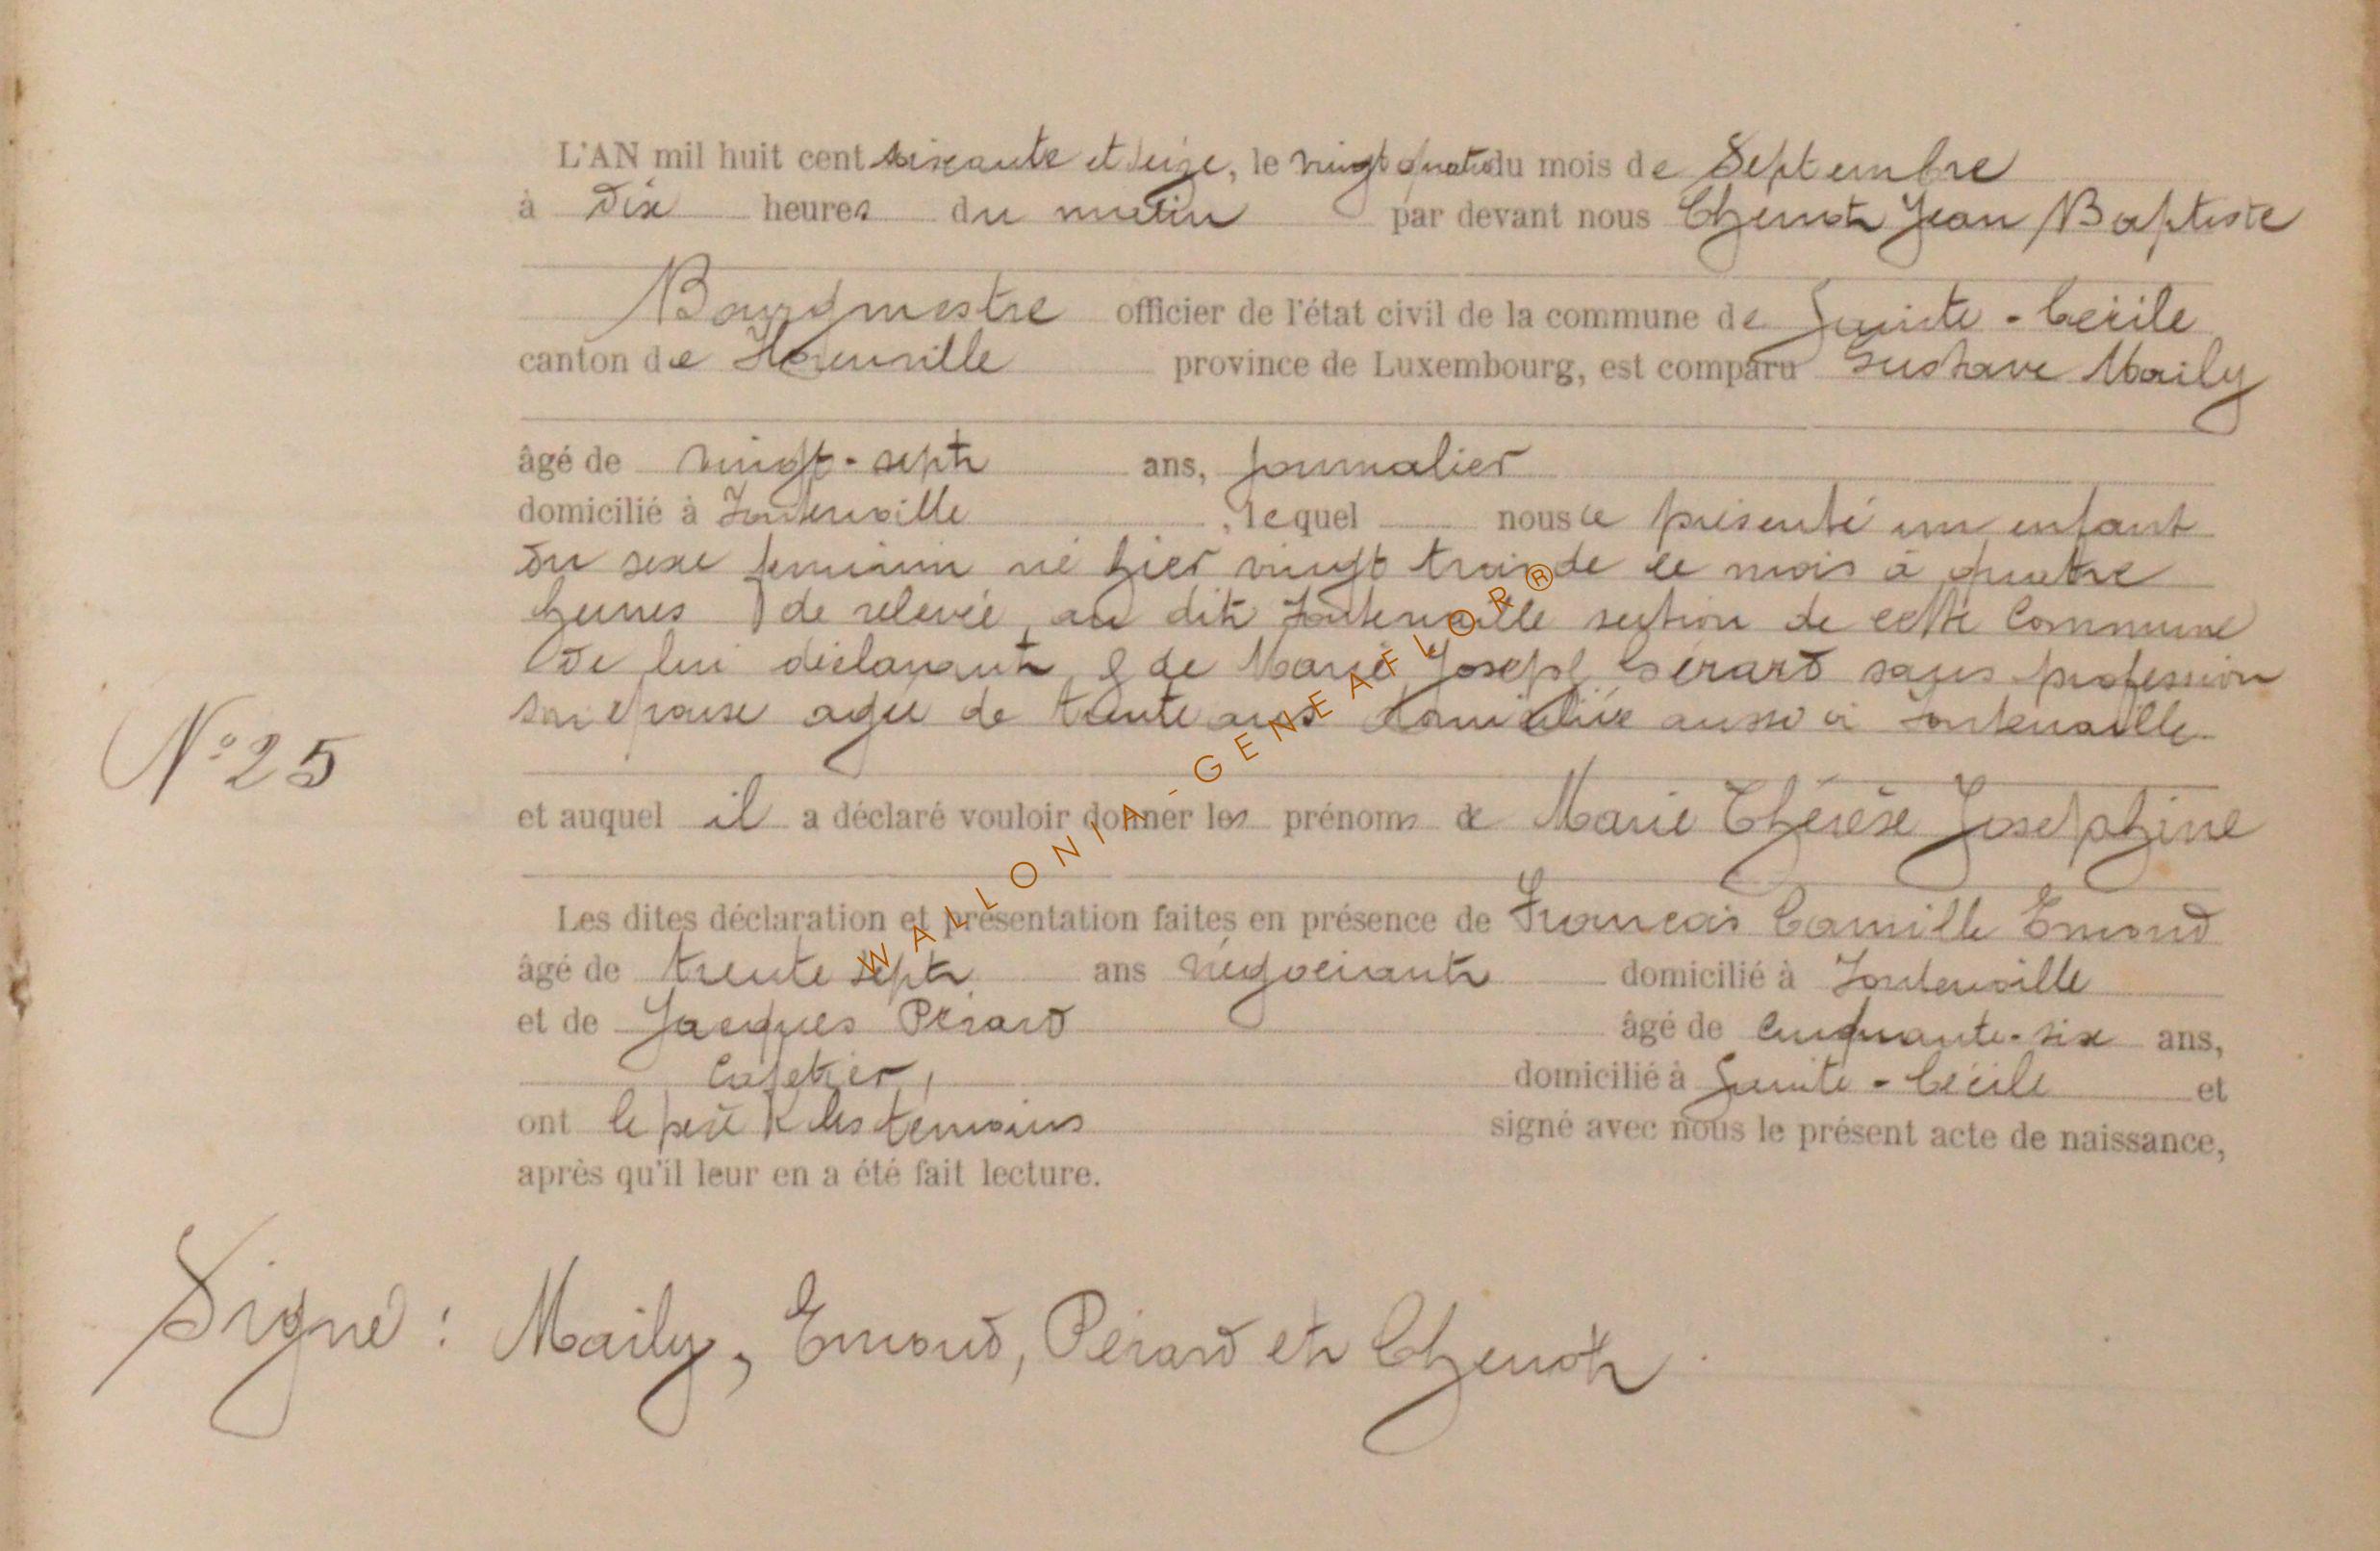 L'AN mil huit cent soixante et seize, le vingt quatre du mois de Septembre
à Dix heures du matin par devant nous Chenot Jean Baptiste
Bourgmestre officier de l'état civil de la commune de Sainte-Cécile
canton de Florenville province de Luxembourg, est comparu Gustave Maily
âgé de vingt-sept ans, journalier
domicilié à Fontenoille, lequel nous a présenté un enfant
du sexe feminin né hier vingt trois de ce mois à quatre
heures de relevée, au dit Fontenaille section de cette Commune
De lui déclarant, & de Marie Joseph Gérard sans profession
son epouse agée de trente ans domiciliée aussi à Fontenaille
N° 25
et auquel il a déclaré vouloir donner les prénoms de Marie Thérèse Josephine
Les dites déclaration et présentation faites en présence de Francois Camille Emond
âgé de trente sept ans négociant domicilié à Fontenoille
et de Jacques Pérard âgé de Cinquante-six ans,
Cafetier, domicilié à Sainte-Cécile et
ont le père & les temoins signé avec nous le présent acte de naissance,
après qu'il leur en a été fait lecture.
Signé : Maily, Emond, Pérard et Chenot.
WALLONIA-GENEAFLOR®